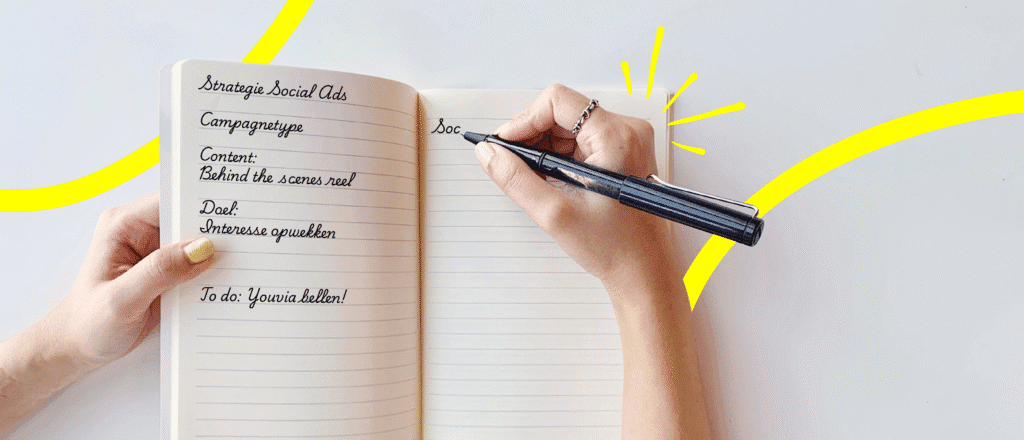 Strategie Social Ads
Campagnetype
Content:
Behind the scenes reel
Doel:
Interesse opwekken
To do: Youvia bellen!
Soc